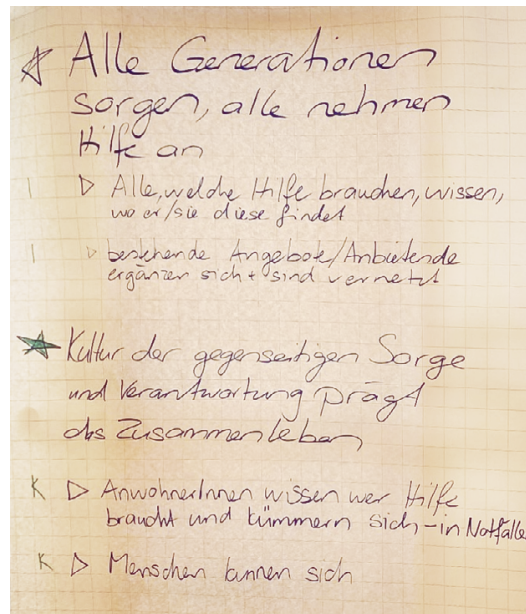 ☆ Alle Generationen
sorgen, alle nehmen
Hilfe an
I ▷ Alle, welche Hilfe brauchen, wissen,
wo er/sie diese findet
I ▷ bestehende Angebote/Anbietende
ergänzen sich + sind vernetzt
★ Kultur der gegenseitigen Sorge
und Verantwortung prägt
das Zusammenleben
K ▷ AnwohnerInnen wissen wer Hilfe
braucht und kümmern sich – in Notfälle
K ▷ Menschen kennen sich